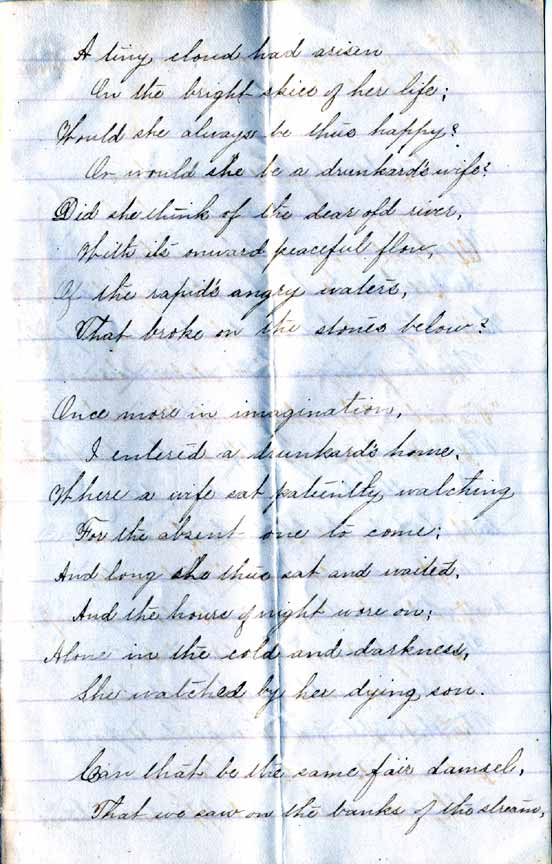 A tiny cloud had arisen
On the bright skies of her life;
Would she always be thus happy?
Or would she be a drunkard's wife?
Did she think of the dear old river,
With its onward peaceful flow,
Of the rapid's angry waters,
That broke on the stones below?
Once more in imagination,
I entered a drunkard's home,
Where a wife sat patiently watching
For the absent one to come;
And long she thus sat and waited,
And the hours of night wore on;
Alone in the cold and darkness,
She watched by her dying son.
Can that be the same fair damsel,
That we saw on the banks of the stream,